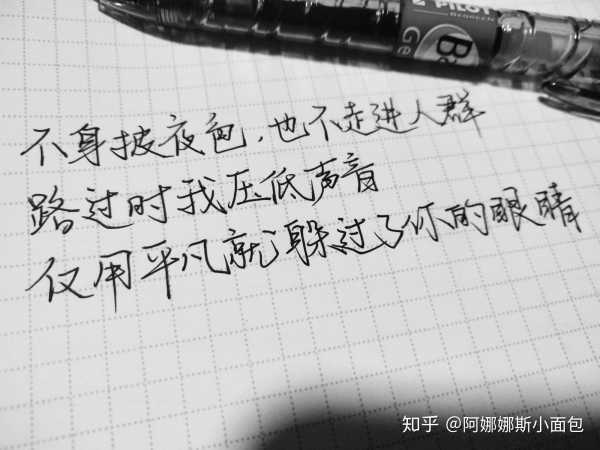 PILOT
BeGREEN
Ge
不身披夜色，也不走进人群
路过时我压低声音
仅用平凡就躲过了你的眼睛
知乎 @阿娜娜斯小面包